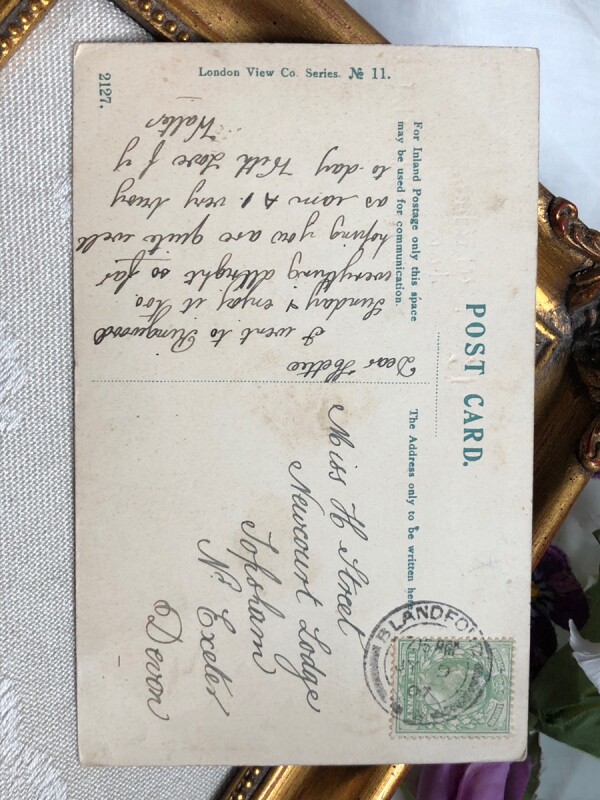 POST CARD.
For Inland Postage only this space
may be used for communication.
The Address only to be written here
London View Co. Series. № 11.
2127.
Dear Hettie
I went to Ringwood
Sunday & enjoy it too.
everything allright so far
hoping you are quite well
as iam A1. very busy
to-day With Love fy
Walter
Miss H Street
Newcourt Lodge
Topsham
Nr Exeter
Devon
BLANDFO
07